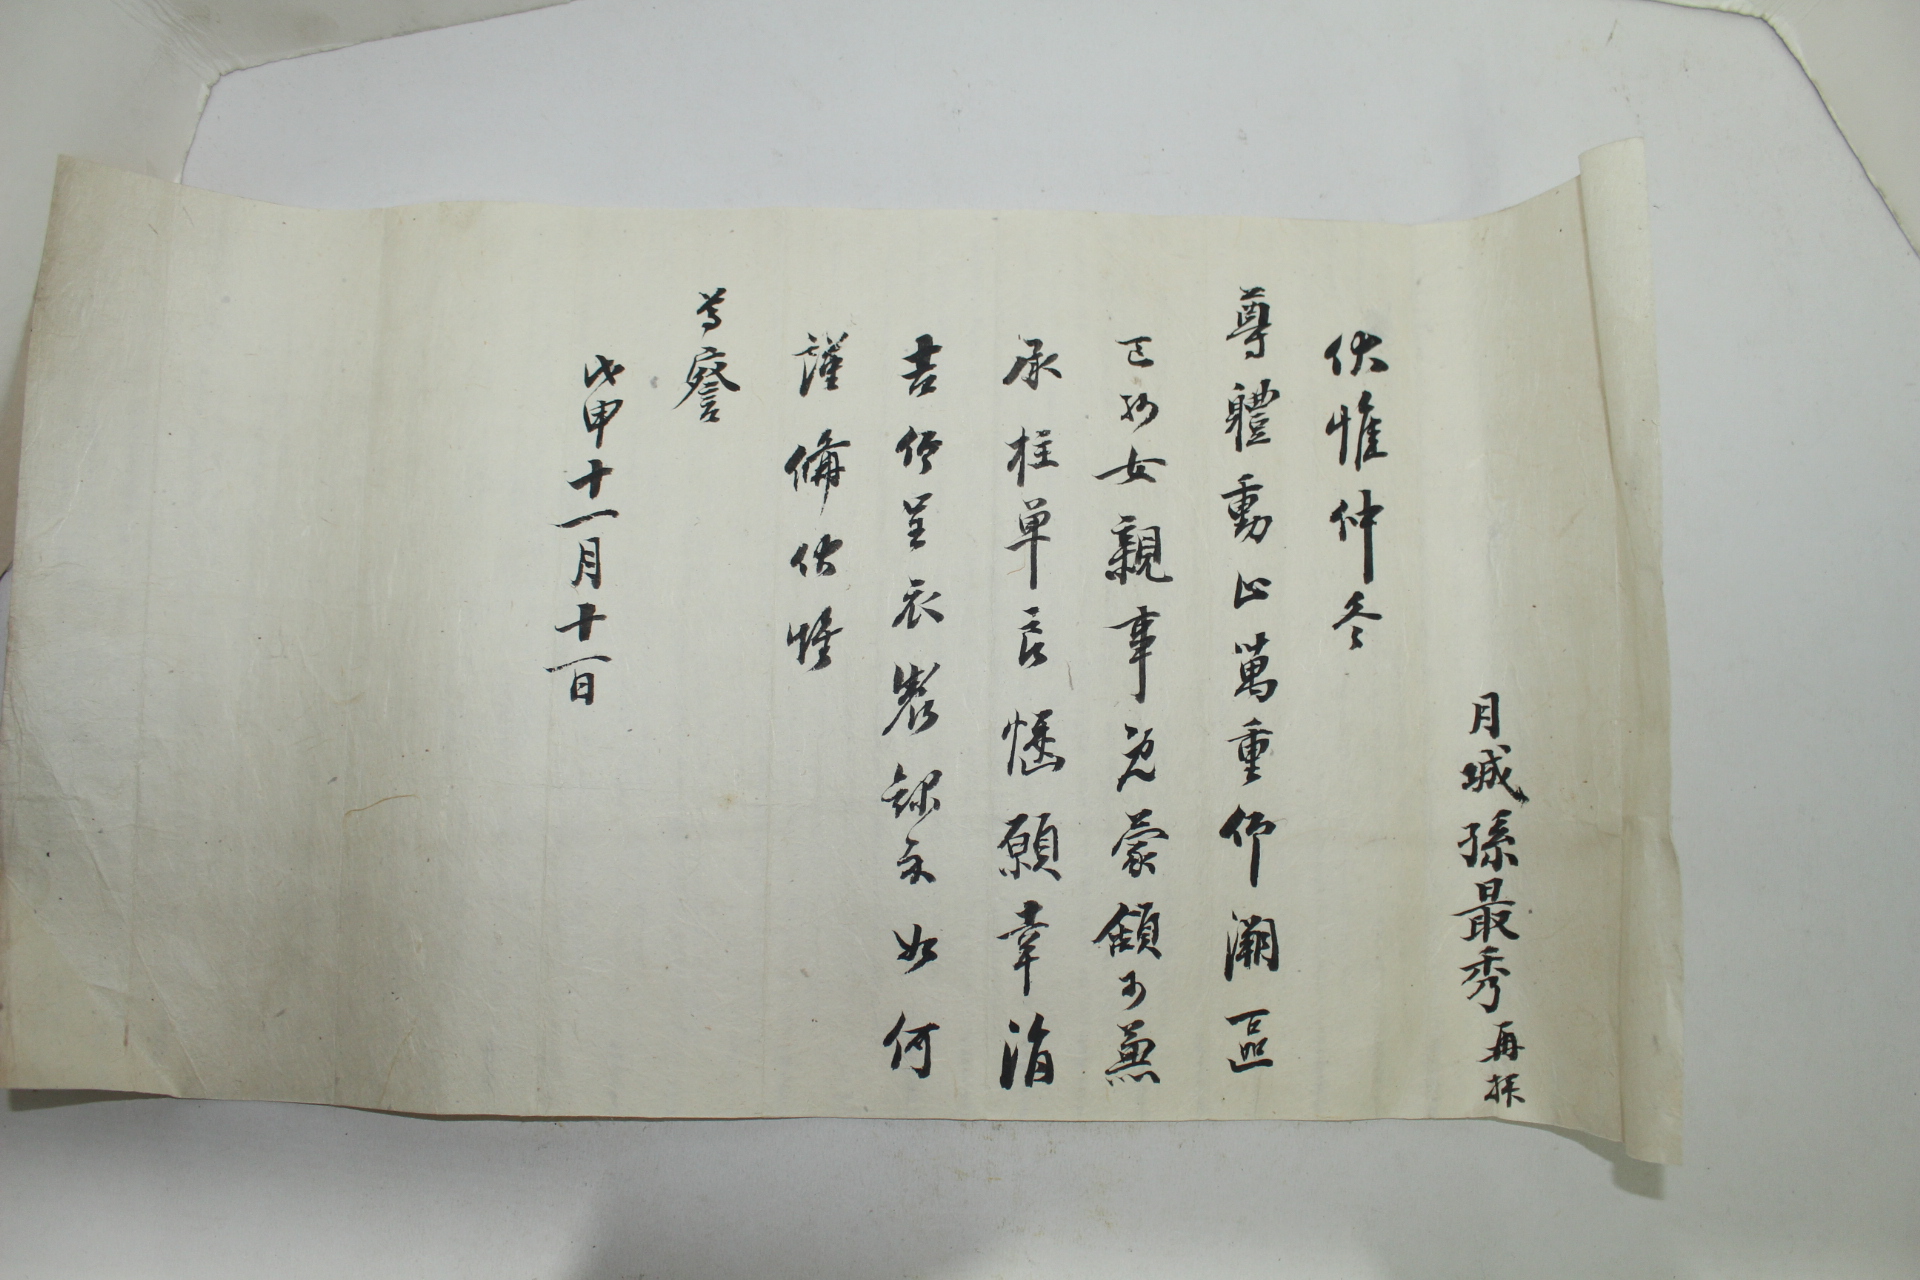 月城孫最秀再拜
伏惟仲冬
尊體動止萬重仰溯區
區 女親事旣蒙頷可兼
承柱單良愜願幸涓
吉仰呈衣製錄示如何
謹備伏惟
尊察
戊申十一月十一日